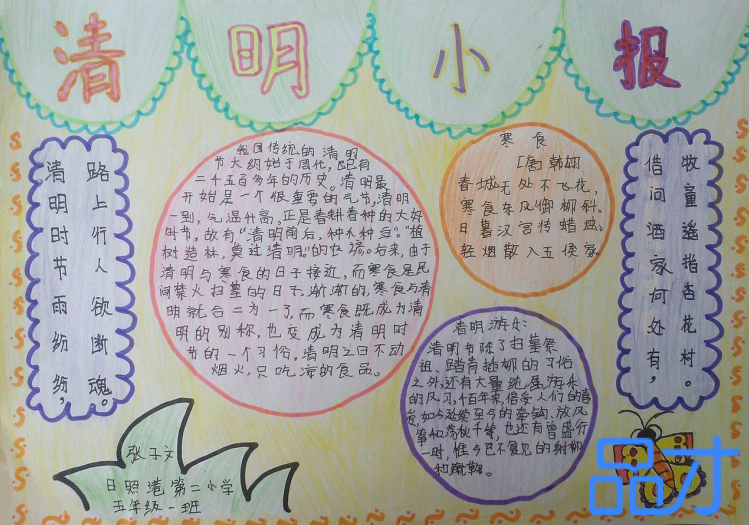 清明小报
清明时节雨纷纷，
路上行人欲断魂。
我国传统的清明
节大约始于周代，已有
二千五百多年的历史。清明最
开始是一个很重要的气节，清明
一到，气温升高，正是春耕春种的大好
时节，故有“清明前后，种瓜种豆。”“植
树造林，莫过清明。”的农谚。后来，由于
清明与寒食的日子接近，而寒食是民
间禁火扫墓的日子。渐渐的，寒食与清
明就合二为一了，而寒食既成为清
明的别称，也变成为清明时
节的一个习俗，清明之日不动
烟火，只吃凉的食品。
寒食
[唐]韩翃
春城无处不飞花，
寒食东风御柳斜。
日暮汉宫传蜡烛，
轻烟散入五侯家
借问酒家何处有，
牧童遥指杏花村。
清明游乐：
清明节除了扫墓祭
祖、踏青插柳的习俗
之外，还有大量纯属游乐
的风习，千百年来倍受人们的喜
爱，如今延续至今的牵钩、放风
筝和荡秋千等，也还有曾盛行
一时，惟今已不复见的射柳
和蹴鞠。
张子文
日照港第二小学
五年级一班
品才